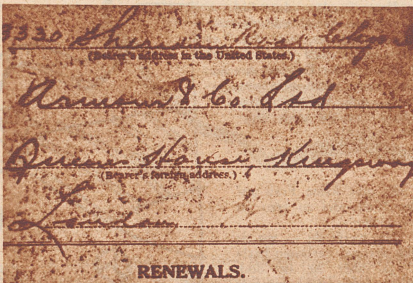 (Bearer's address in the United States.)
Armour & Co Ltd
Queens House Kingsway
(Bearer's foreign address.)
London
RENEWALS.